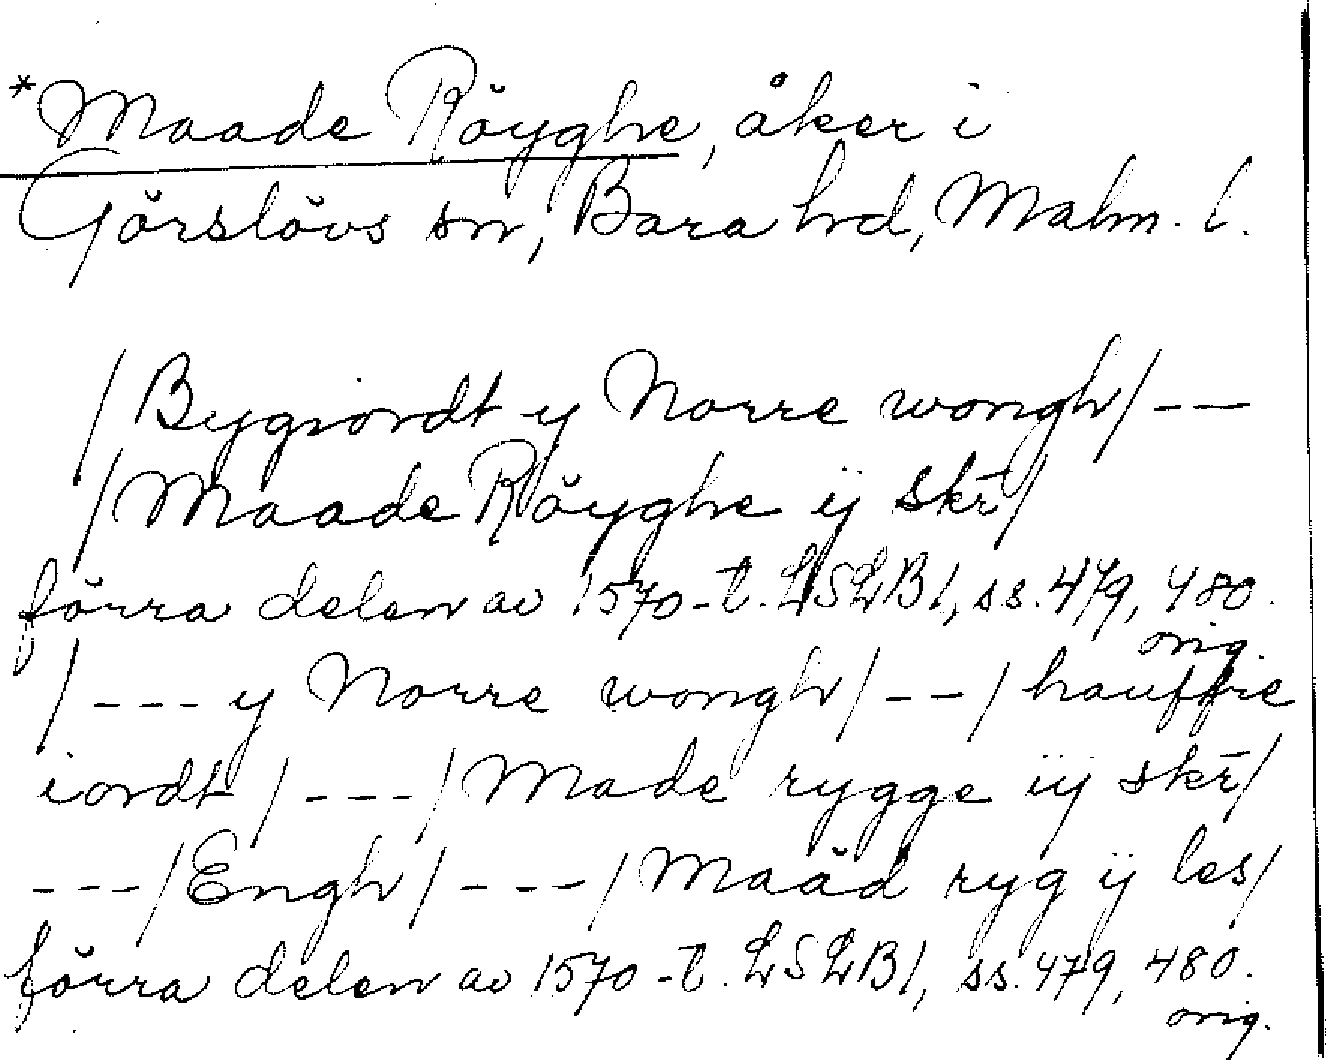 *Maade Röyghe, åker i
Görslövs sn, Bara hd, Malm. l.
/Bygiordt y Norre wongh/ - -
/Maade Röyghe ij skr̄/
förra delen av 1570-t. LSLB1, ss. 479, 480.
orig.
/ - - - y Norre wongh/ - - / hauffre
iordt / - - - / Made rygge iij skr̄/
- - - /Engh/ - - - / Maåd ryg ij les/
förra delen av 1570-t. LSLB1, ss. 479, 480.
orig.